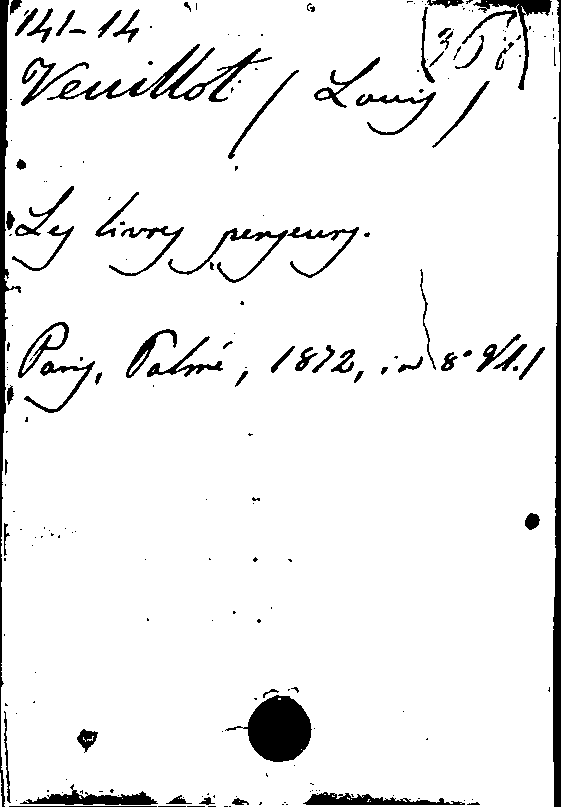 141-14
(368)
Veuillot / Louis /
Les livres penseurs.
Paris, Palmé, 1872, in 8° Vl. 1